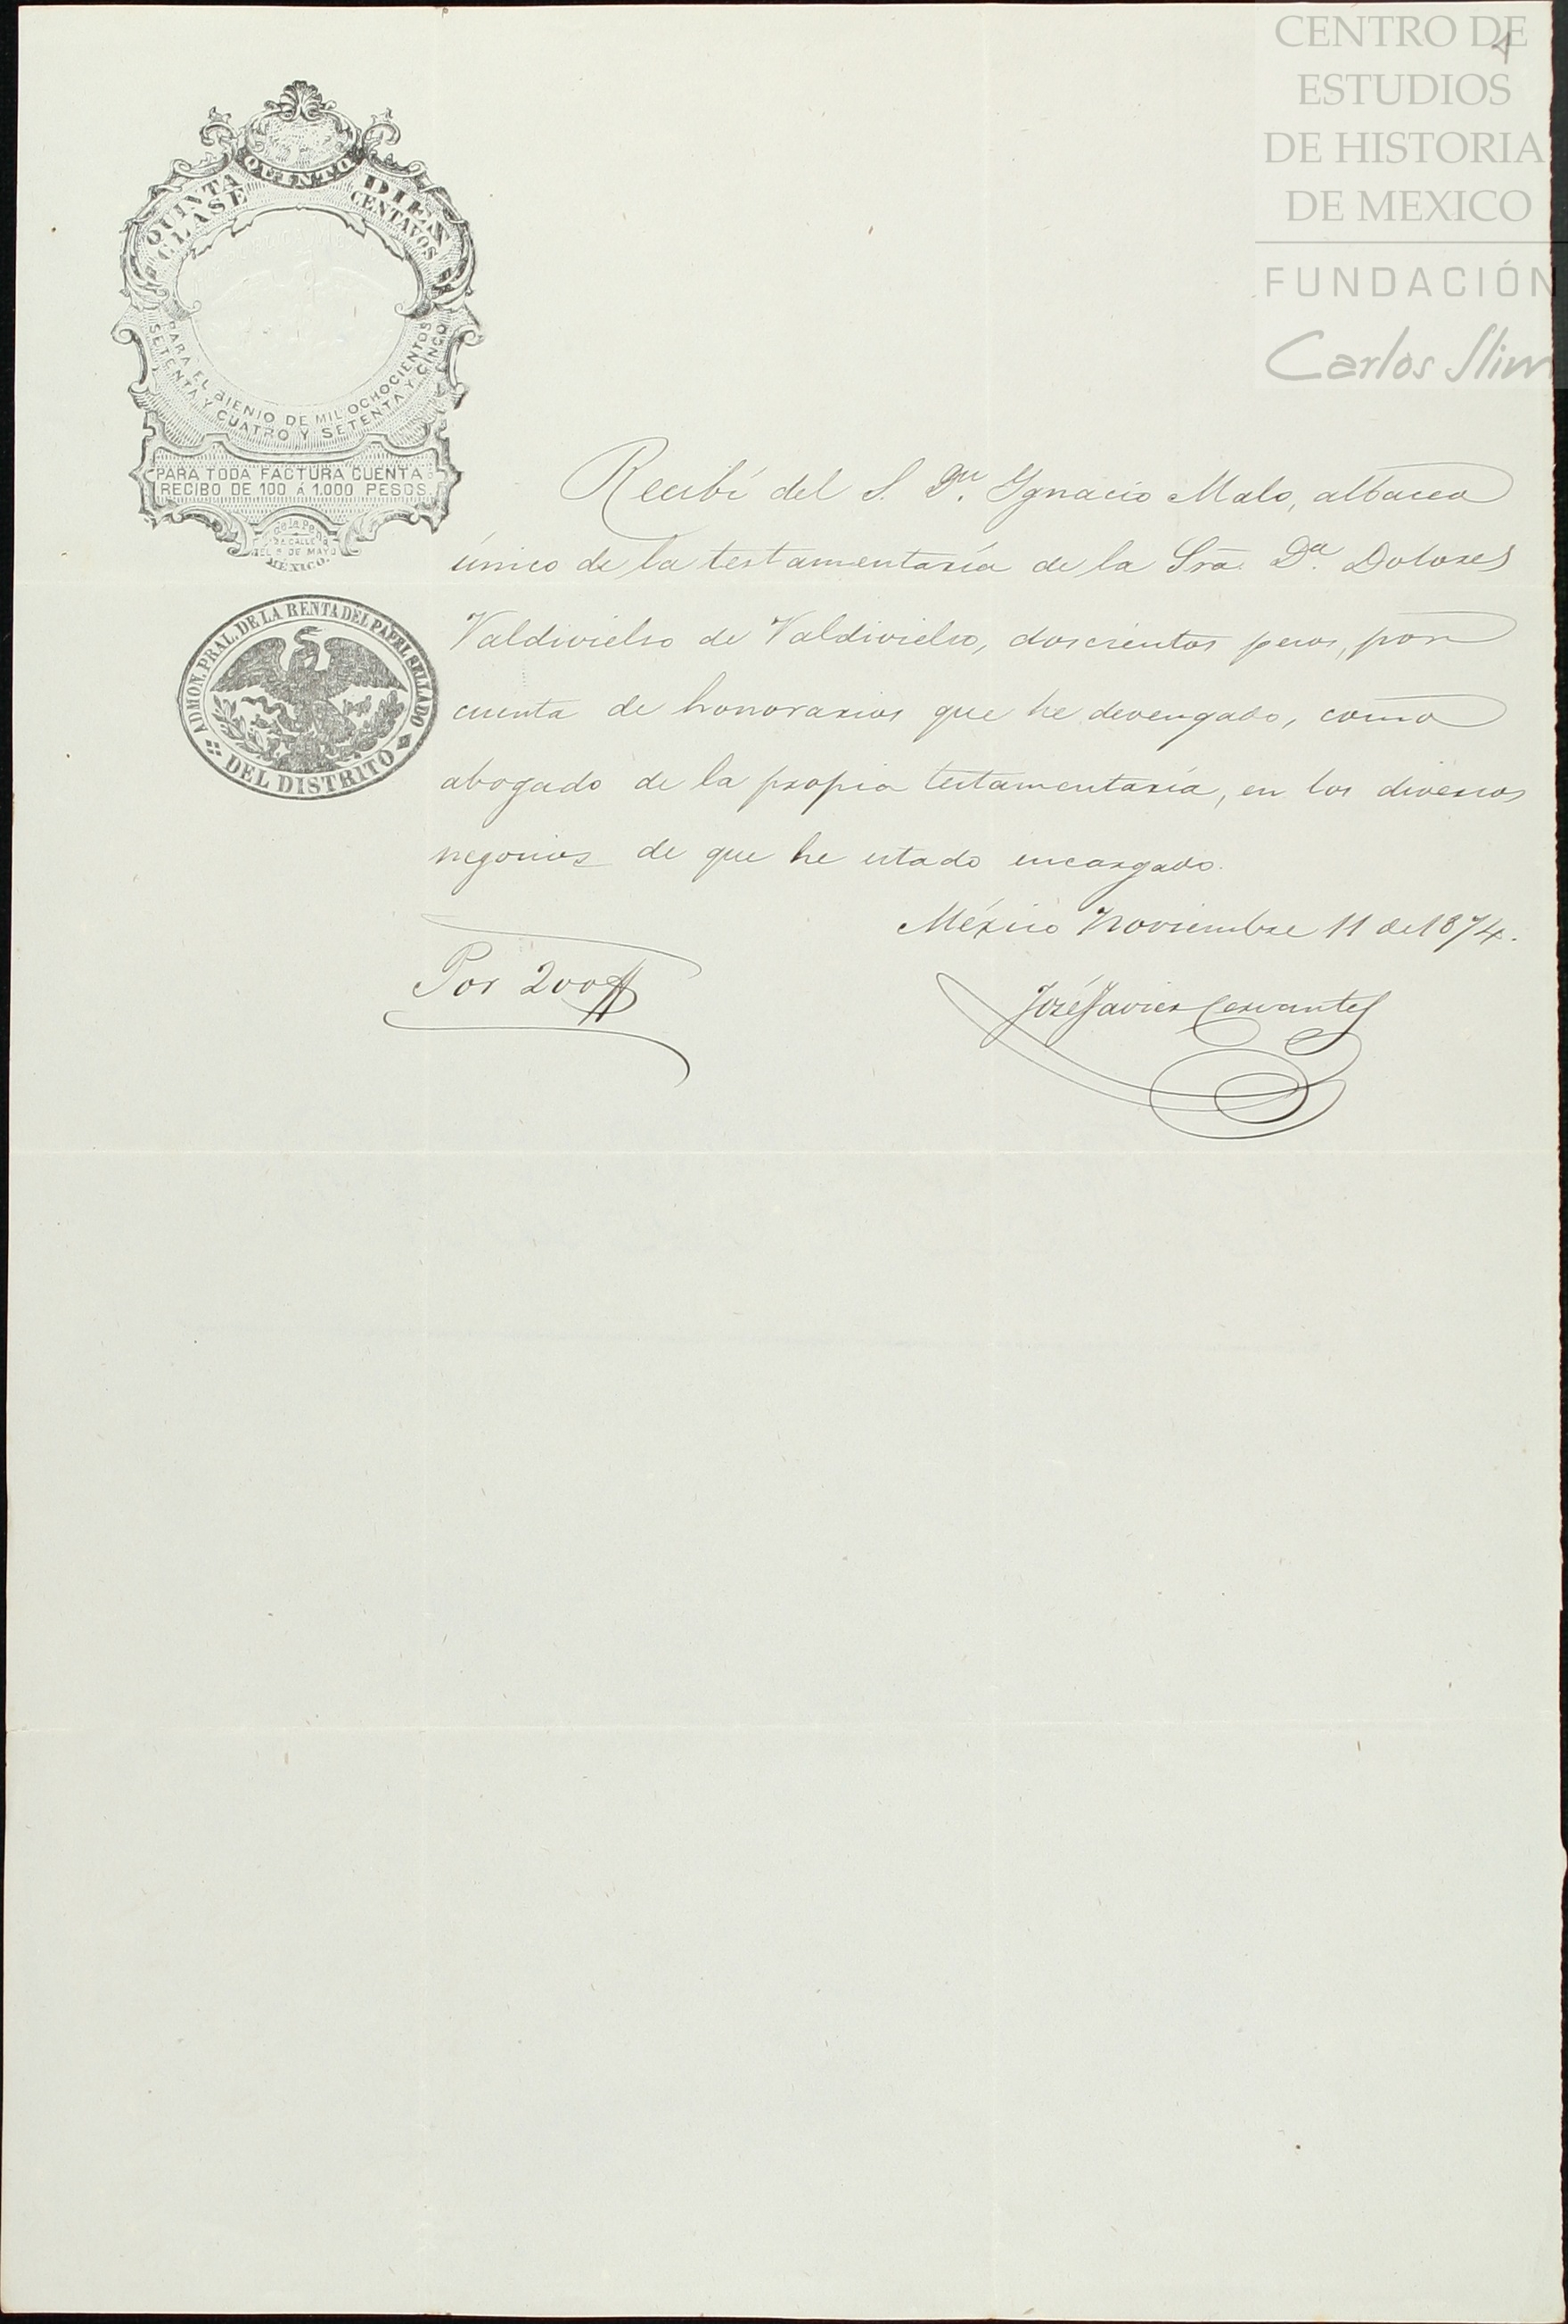 CENTRO DE
ESTUDIOS
DE HISTORIA
DE MEXICO
FUNDACIÓN
Carlos Slim
QUINTO
QUINTA CLASE
DIEZ CENTAVOS
PARA EL BIENIO DE MIL OCHOCIENTOS
SETENTA Y CUATRO Y SETENTA Y CINCO
PARA TODA FACTURA CUENTA Ó
RECIBO DE 100 Á 1.000 PESOS.
de la Peña
2ª CALLE
DEL 5 DE MAYO
MÉXICO.
ADMON. PRAL. DE LA RENTA DEL PAPEL SELLADO
DEL DISTRITO
Recibí del S. Dn. Ygnacio Malo, albacea
único de la testamentaría de la Sra. Da. Dolores
Valdivielso de Valdivielso, doscientos pesos, por
cuenta de honorarios que he devengado, como
abogado de la propia testamentaría, en los diversos
negocios de que he estado encargado.
México Noviembre 11 de 1874.
Por 200$
José Javier Cervantes